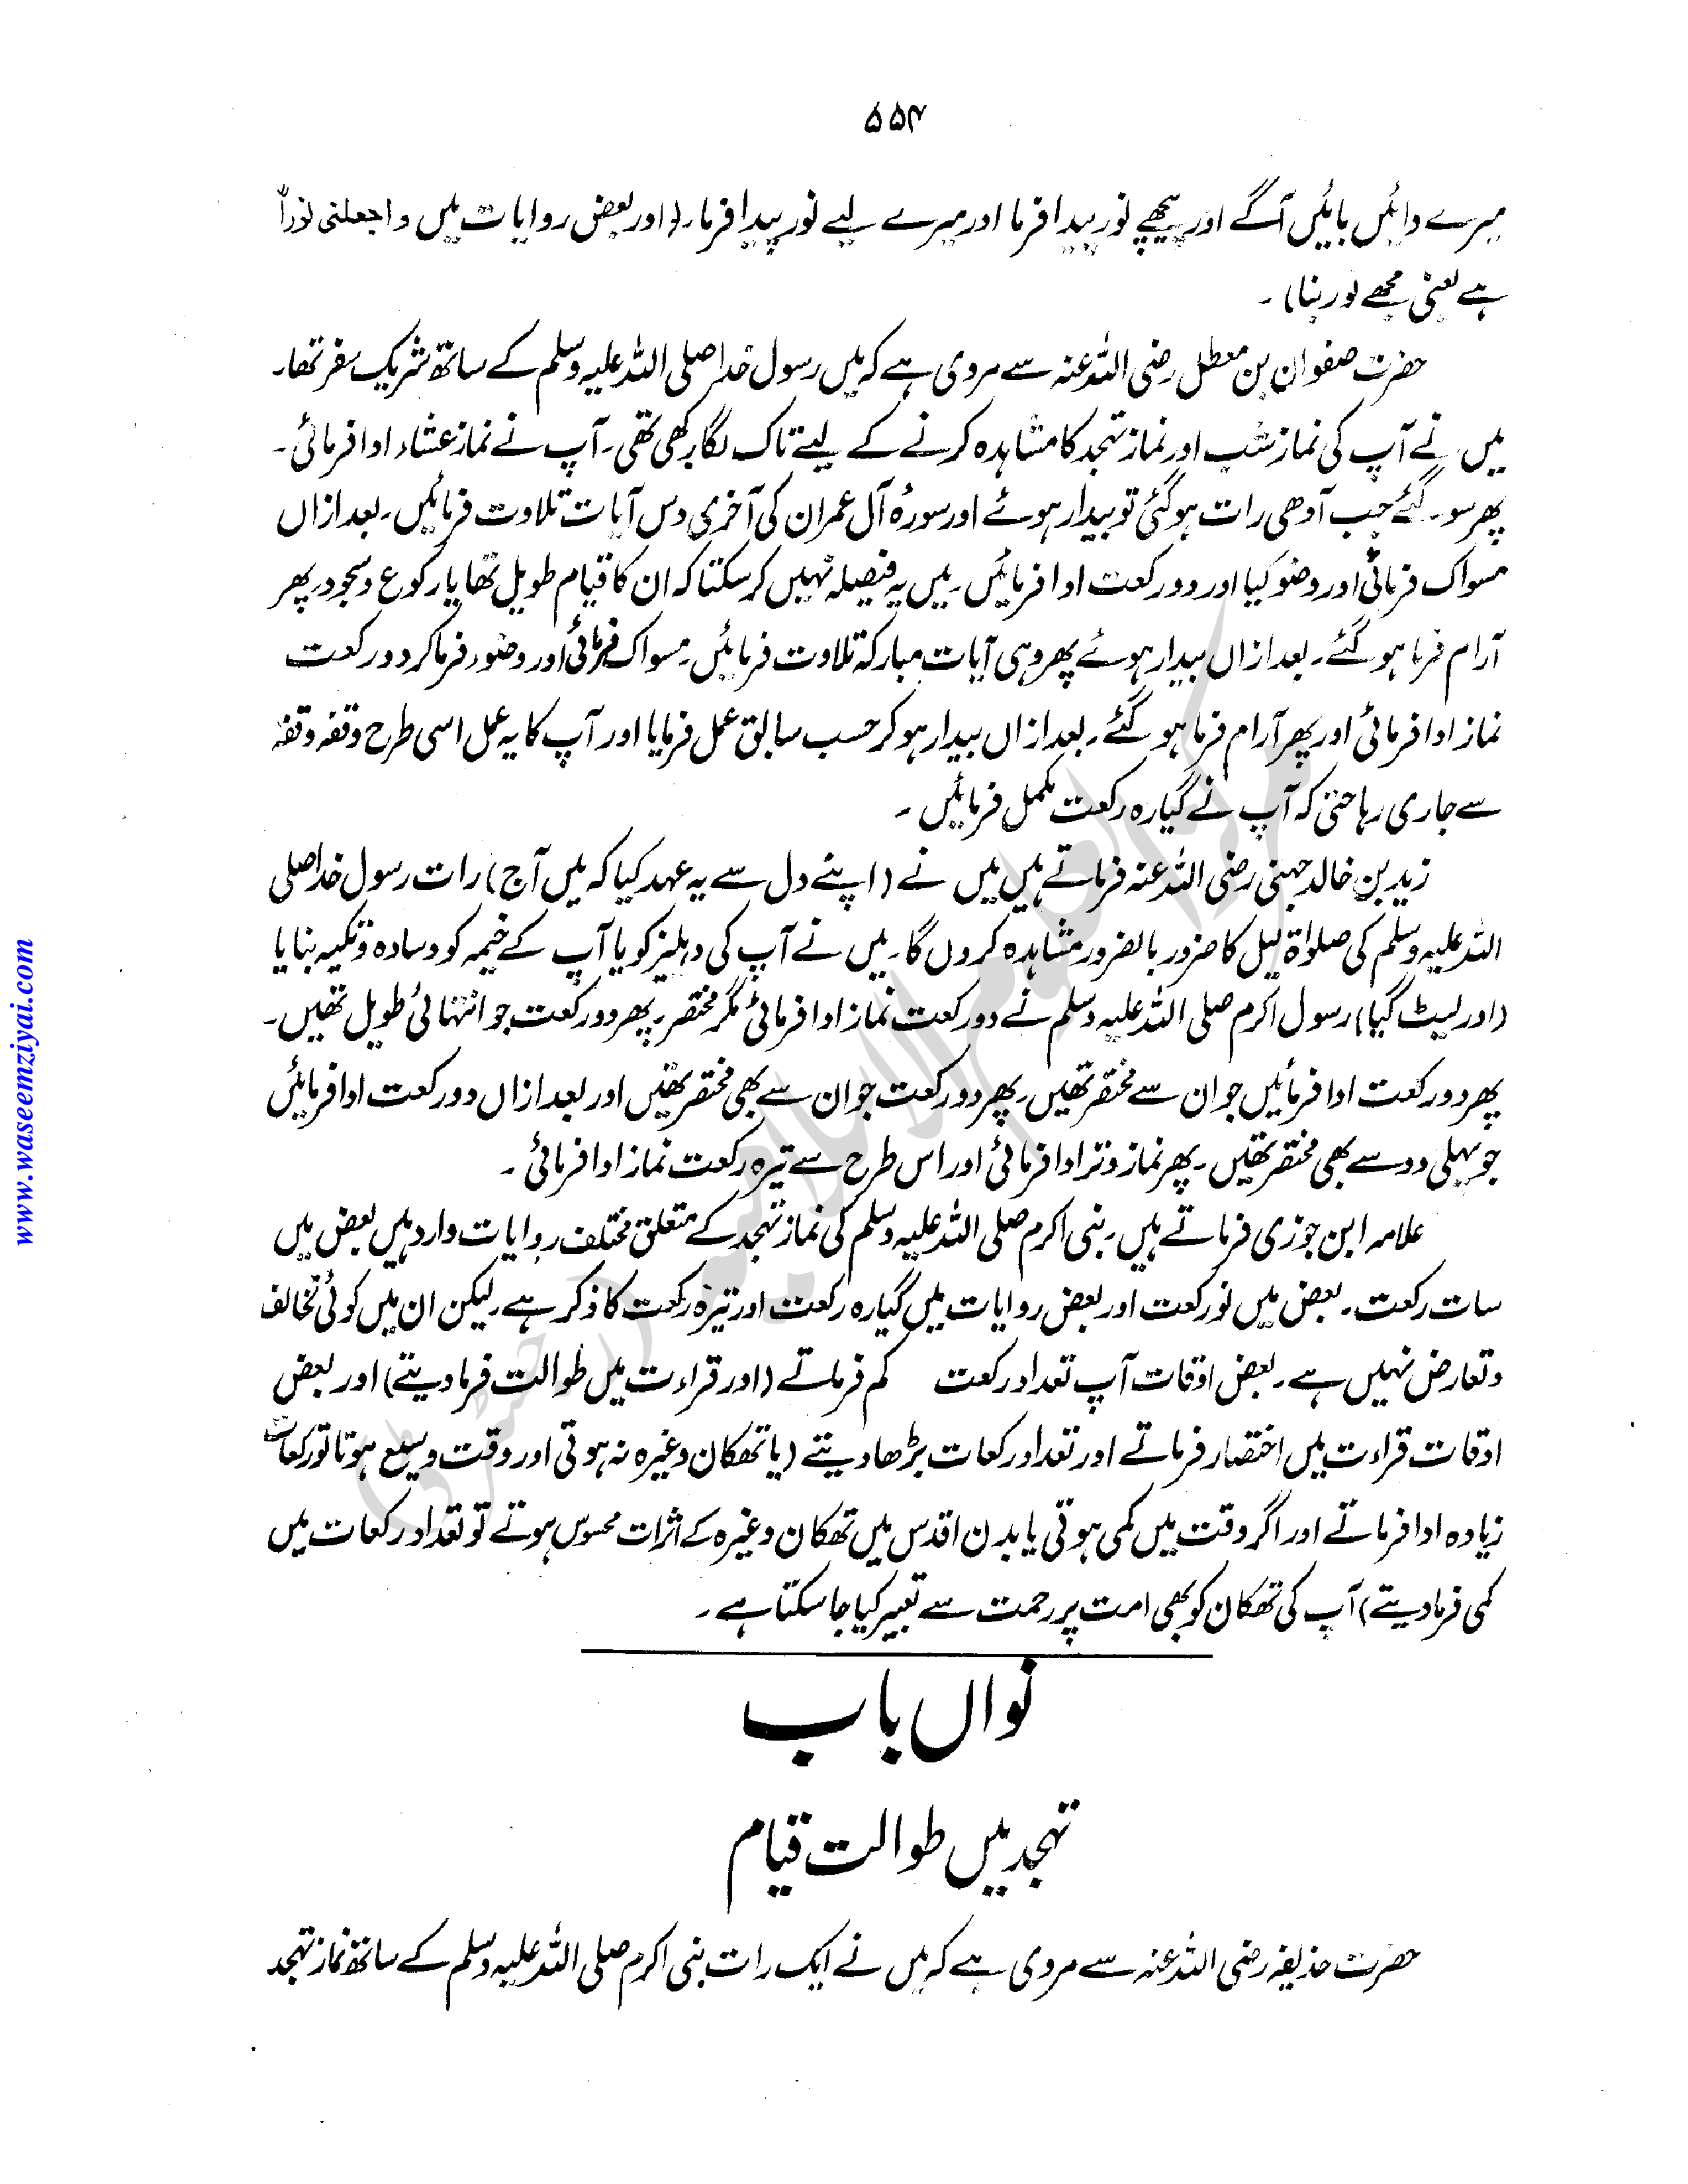 ۵۵۴
میرے دائیں بائیں آگے اور پیچھے نور پیدا فرما اور میرے لیے نور پیدا فرما۔ (اور بعض روایات میں واجعلنی نوراً
ہے یعنی مجھے نور بنا)۔
حضرت صفوان بن معطل رضی اللہ عنہ سے مروی ہے کہ میں رسول خدا صلی اللہ علیہ وسلم کے ساتھ شریک سفر تھا۔
میں نے آپ کی نماز شب اور نماز تہجد کا مشاہدہ کرنے کے لیے تاک لگا رکھی تھی۔ آپ نے نماز عشاء ادا فرمائی۔
پھر سو گئے جب آدھی رات ہو گئی تو بیدار ہوئے اور سورۂ آل عمران کی آخری دس آیات تلاوت فرمائیں۔ بعد ازاں
مسواک فرمائی اور وضو کیا اور دو رکعت ادا فرمائیں۔ میں یہ فیصلہ نہیں کر سکتا کہ ان کا قیام طویل تھا یا رکوع و سجود۔ پھر
آرام فرما ہو گئے۔ بعد ازاں بیدار ہوئے پھر وہی آیات مبارکہ تلاوت فرمائیں۔ مسواک فرمائی اور وضو فرما کر دو رکعت
نماز ادا فرمائی اور پھر آرام فرما ہو گئے۔ بعد ازاں بیدار ہو کر حسب سابق عمل فرمایا اور آپ کا یہ عمل اسی طرح وقفہ وقفہ
سے جاری رہا حتیٰ کہ آپ نے گیارہ رکعت مکمل فرمائیں۔
زید بن خالد جہنی رضی اللہ عنہ فرماتے ہیں میں نے (اپنے دل سے یہ عہد کیا کہ میں آج) رات رسول خدا صلی
اللہ علیہ وسلم کی صلوٰۃ لیل کا ضرور بالضرور مشاہدہ کروں گا۔ میں نے آپ کی دہلیز کو یا آپ کے خیمہ کو وسادہ و تکیہ بنایا
(اور لیٹ گیا) رسول اکرم صلی اللہ علیہ وسلم نے دو رکعت نماز ادا فرمائی مگر مختصر۔ پھر دو رکعت جو انتہائی طویل تھیں۔
پھر دو رکعت ادا فرمائیں جو ان سے مختصر تھیں۔ پھر دو رکعت جو ان سے بھی مختصر تھیں اور بعد ازاں دو رکعت ادا فرمائیں
جو پہلی دو سے بھی مختصر تھیں۔ پھر نماز وتر ادا فرمائی اور اس طرح سے تیرہ رکعت نماز ادا فرمائی۔
علامہ ابن جوزی فرماتے ہیں۔ نبی اکرم صلی اللہ علیہ وسلم کی نماز تہجد کے متعلق مختلف روایات وارد ہیں بعض میں
سات رکعت۔ بعض میں نو رکعت اور بعض روایات میں گیارہ رکعت اور تیرہ رکعت کا ذکر ہے۔ لیکن ان میں کوئی تخالف
و تعارض نہیں ہے۔ بعض اوقات آپ تعداد رکعت کم فرماتے (اور قراءت میں طوالت فرما دیتے) اور بعض
اوقات قراءت میں اختصار فرماتے اور تعداد رکعات بڑھا دیتے (یا تھکان وغیرہ نہ ہوتی اور وقت وسیع ہوتا تو رکعات
زیادہ ادا فرماتے اور اگر وقت میں کمی ہوتی یا بدن اقدس میں تھکان وغیرہ کے اثرات محسوس ہوتے تو تعداد رکعات میں
کمی فرما دیتے) آپ کی تھکان کو بھی امت پر رحمت سے تعبیر کیا جا سکتا ہے۔
نواں باب
تہجد میں طوالت قیام
حضرت حذیفہ رضی اللہ عنہ سے مروی ہے کہ میں نے ایک رات نبی اکرم صلی اللہ علیہ وسلم کے ساتھ نماز تہجد
www.waseemziyai.com